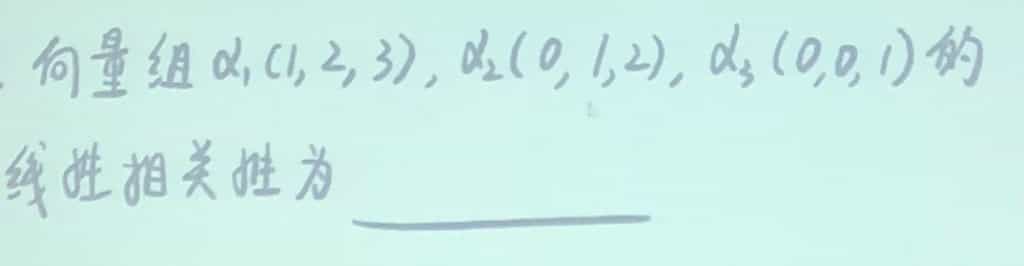 . 向量组 α₁(1, 2, 3), α₂(0, 1, 2), α₃(0, 0, 1) 的
线性相关性为